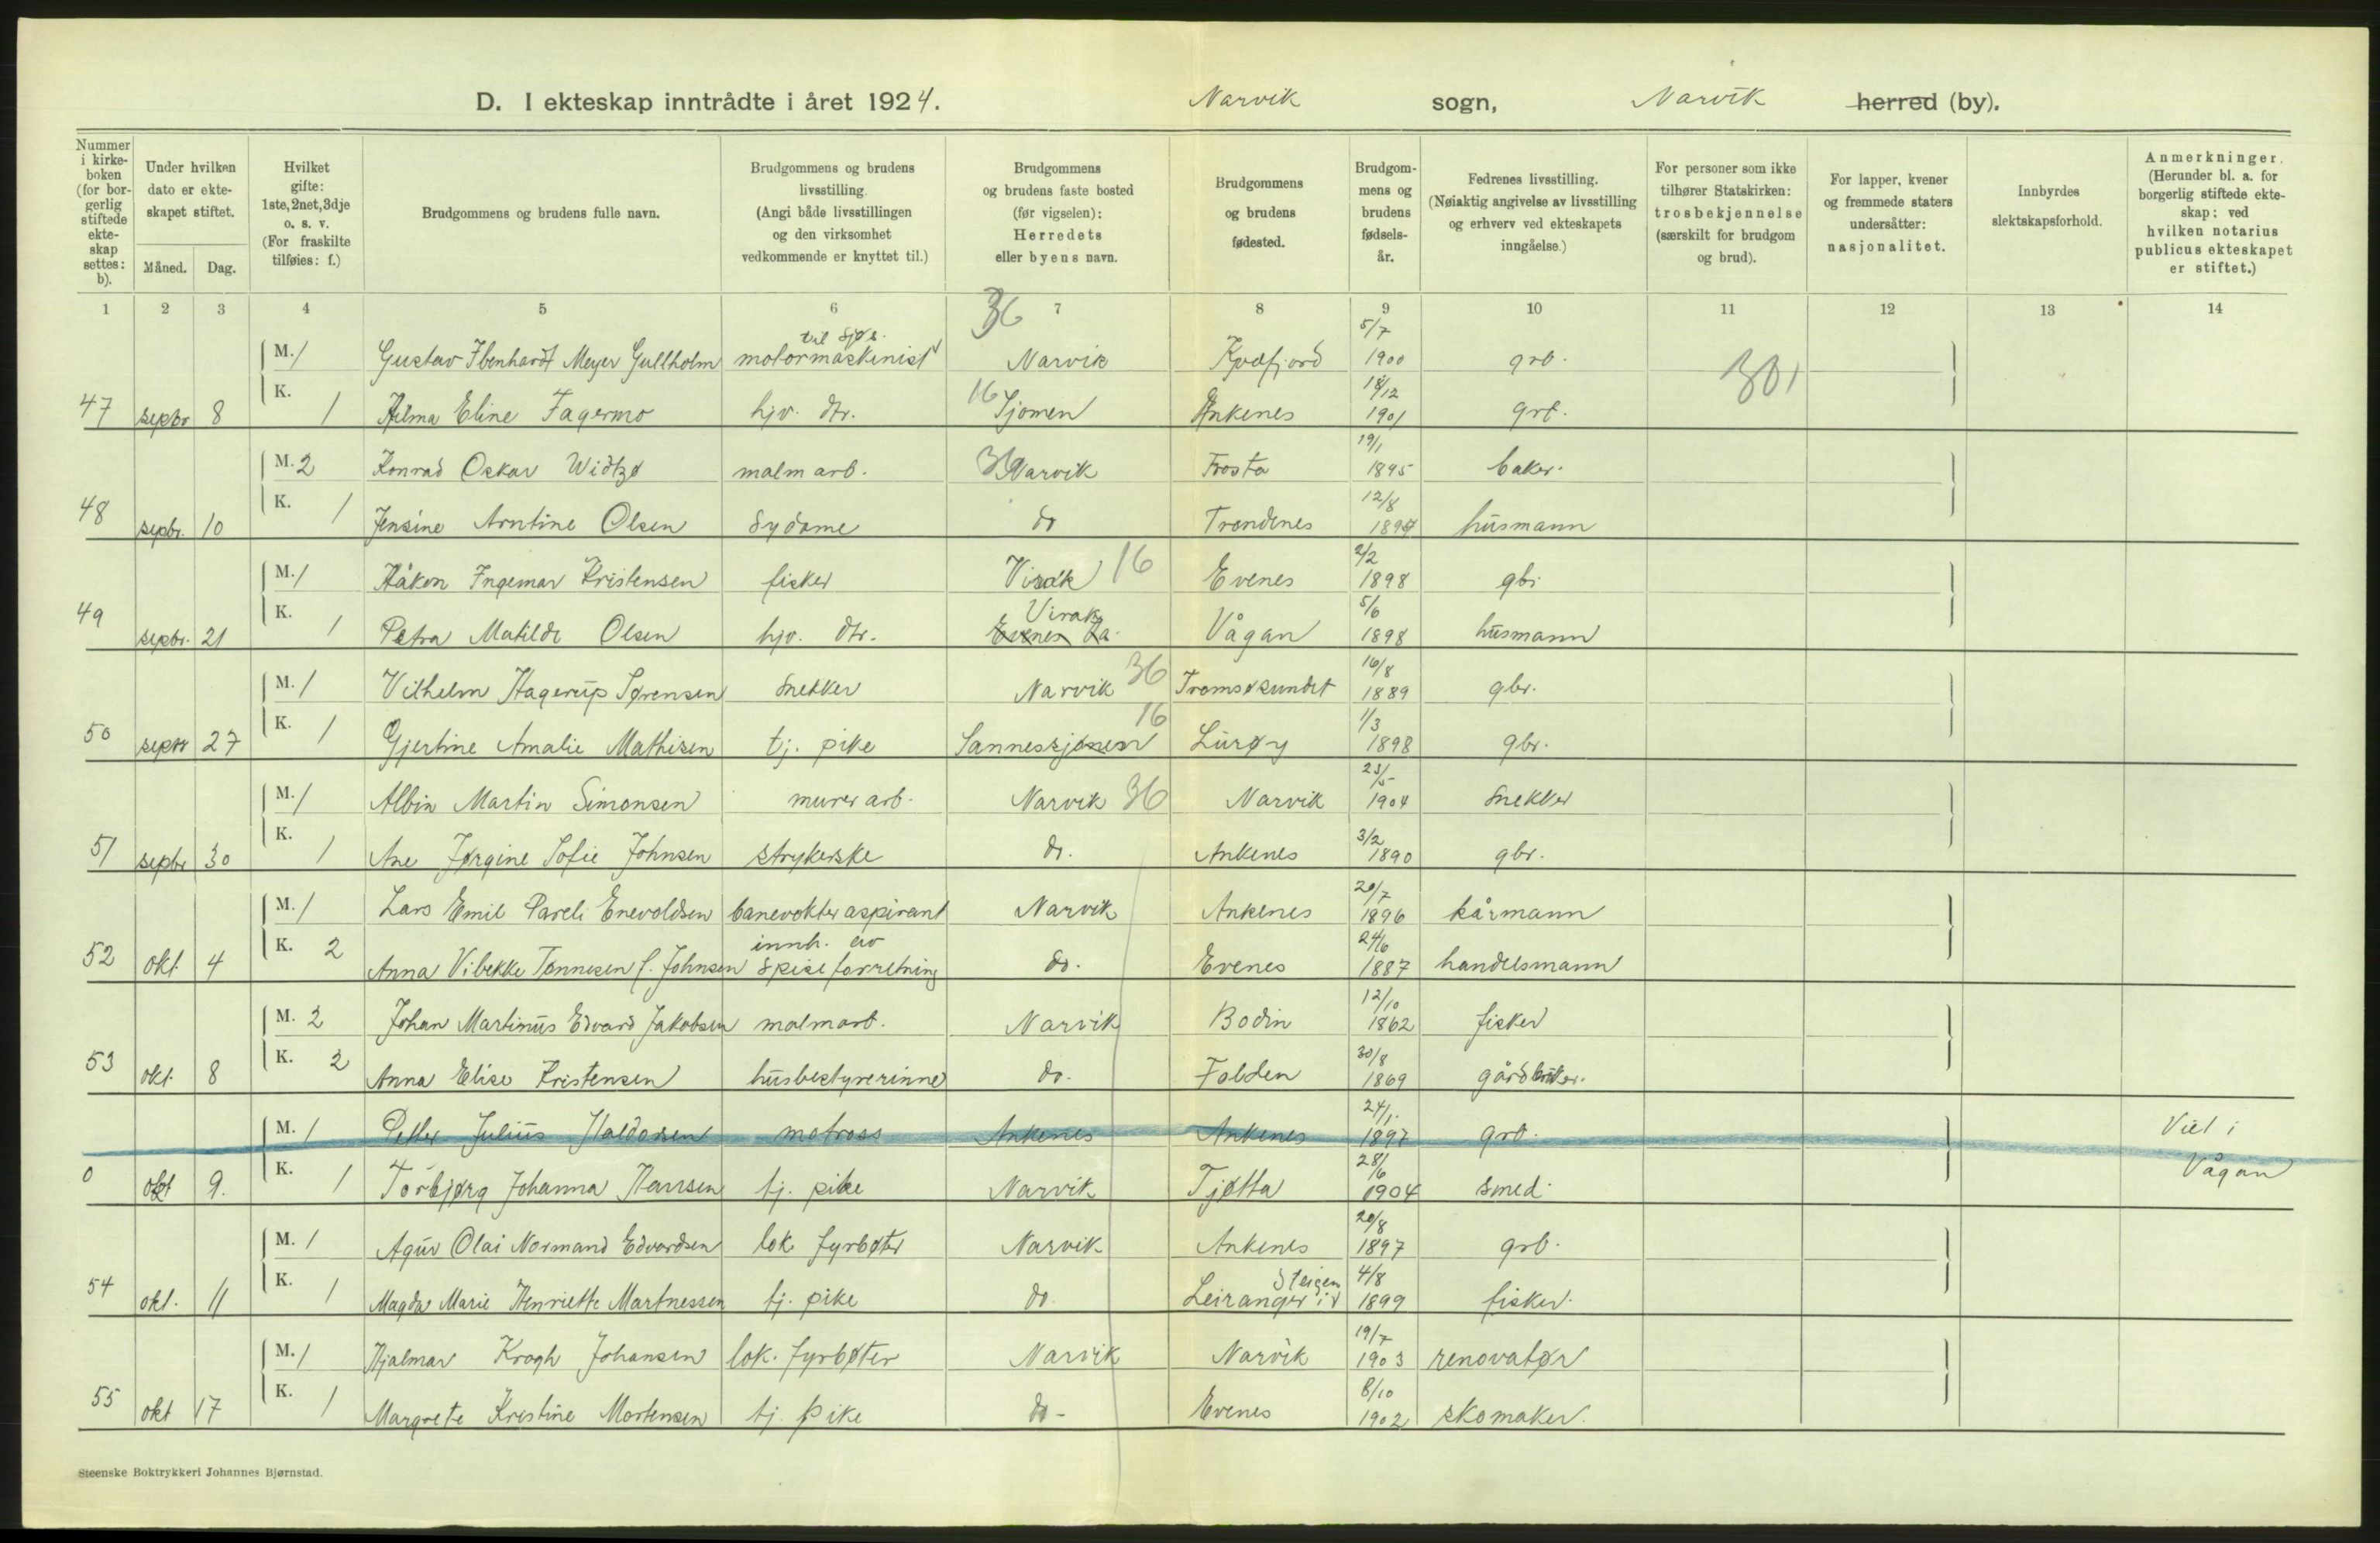 D. I ekteskap inntrådte i året 1924. Narvik sogn, Narvik herred (by).
Nummer i kirkeboken (for borgerlig stiftede ekteskap settes: b).
Under hvilken dato er ekteskapet stiftet.
Måned. Dag.
Hvilket gifte: 1ste, 2net, 3dje o. s. v. (For fraskilte tilføies: f.)
Brudgommens og brudens fulle navn.
Brudgommens og brudens livsstilling. (Angi både livsstillingen og den virksomhet vedkommende er knyttet til.)
Brudgommens og brudens faste bosted (før vigselen): Herredets eller byens navn.
Brudgommens og brudens fødested.
Brudgommens og brudens fødselsår.
Fedrenes livsstilling. (Nøiaktig angivelse av livsstilling og erhverv ved ekteskapets inngåelse.)
For personer som ikke tilhører Statskirken: trosbekjennelse (særskilt for brudgom og brud).
For lapper, kvener og fremmede staters undersåtter: nasjonalitet.
Innbyrdes slektskapsforhold.
Anmerkninger. (Herunder bl. a. for borgerlig stiftede ekteskap: ved hvilken notarius publicus ekteskapet er stiftet.)
1 2 3 4 5 6 7 8 9 10 11 12 13 14
36
M. 1 Gustav Ibenhardt Meyer Gullholm motormaskinist til sjøs. Narvik Kvæfjord 5/7 1900 grb. 301
47 septbr 8 K. 1 Hilma Eline Fagermo hjv. dtr. 16 Sjomen Ankenes 18/12 1901 grb.
M. 2 Konrad Oskar Widtzø malmarb. 36 Narvik Frosta 19/1 1895 baker.
48 septbr. 10 K. 1 Jensine Arntine Olsen Sydame do Trondenes 12/8 husmann
M. 1 Håkon Ingemar Kristensen fisker Virak 16 Evenes 2/2 1898 gbr
49 septbr. 21 K. 1 Petra Matilde Olsen hjv. dtr. Virak Evenes Vågan 5/6 1898 husmann
M. 1 Vilhelm Hagerup Sørensen Snekker Narvik 36 Tromsøsundet 16/8 1889 gbr.
50 septbr 27 K. 1 Gjertine Amalie Mathisen tj. pike Sannessjøen 16 Lurøy 1/3 1898 gbr.
M. 1 Albin Martin Simonsen murerarb. Narvik 36 Narvik 23/5 1904 Snekker
51 septbr 30 K. 1 Ane Jørgine Sofie Johnsen strykerske do. Ankenes 3/2 1890 gbr.
M. 1 Lars Emil Pareli Enevoldsen banevokter aspirant Narvik Ankenes 20/7 1896 kårmann
52 okt. 4 K. 2 Anna Vibekke Tønnesen f. Johnsen innh. av spiseforretning do. Evenes 24/6 1887 handelsmann
M. 2 Johan Martinus Edvard Jakobsen malmarb. Narvik Bodin 12/10 1862 fisker
53 okt. 8 K. 2 Anna Elise Kristensen husbestyrerinne do. Folden 30/8 1869 gårdbruker.
M. 1 Petter Julius Haldorsen matross Ankenes Ankenes 24/1. 1897 grb. Viet i
0 okt 9. K. 1 Torbjørg Johanna Hansen tj. pike Narvik Tjøtta 28/6 1904 smed. Vågan
M. 1 Agur Olai Normand Edvardsen lok fyrbøter Narvik Ankenes 20/8 1897 grb.
54 okt. 11 K. 1 Magda Marie Henriette Martnessen tj. pike do. Leiranger i Steigen 4/8 1899 fisker.
M. 1 Hjalmar Krogh Johansen lok. fyrbøter Narvik Narvik 19/7 1903 renovatør
55 okt 17 K. 1 Margrete Kristine Mortensen tj. pike do - Evenes 8/10 1902 skomaker.
Steenske Boktrykkeri Johannes Bjørnstad.